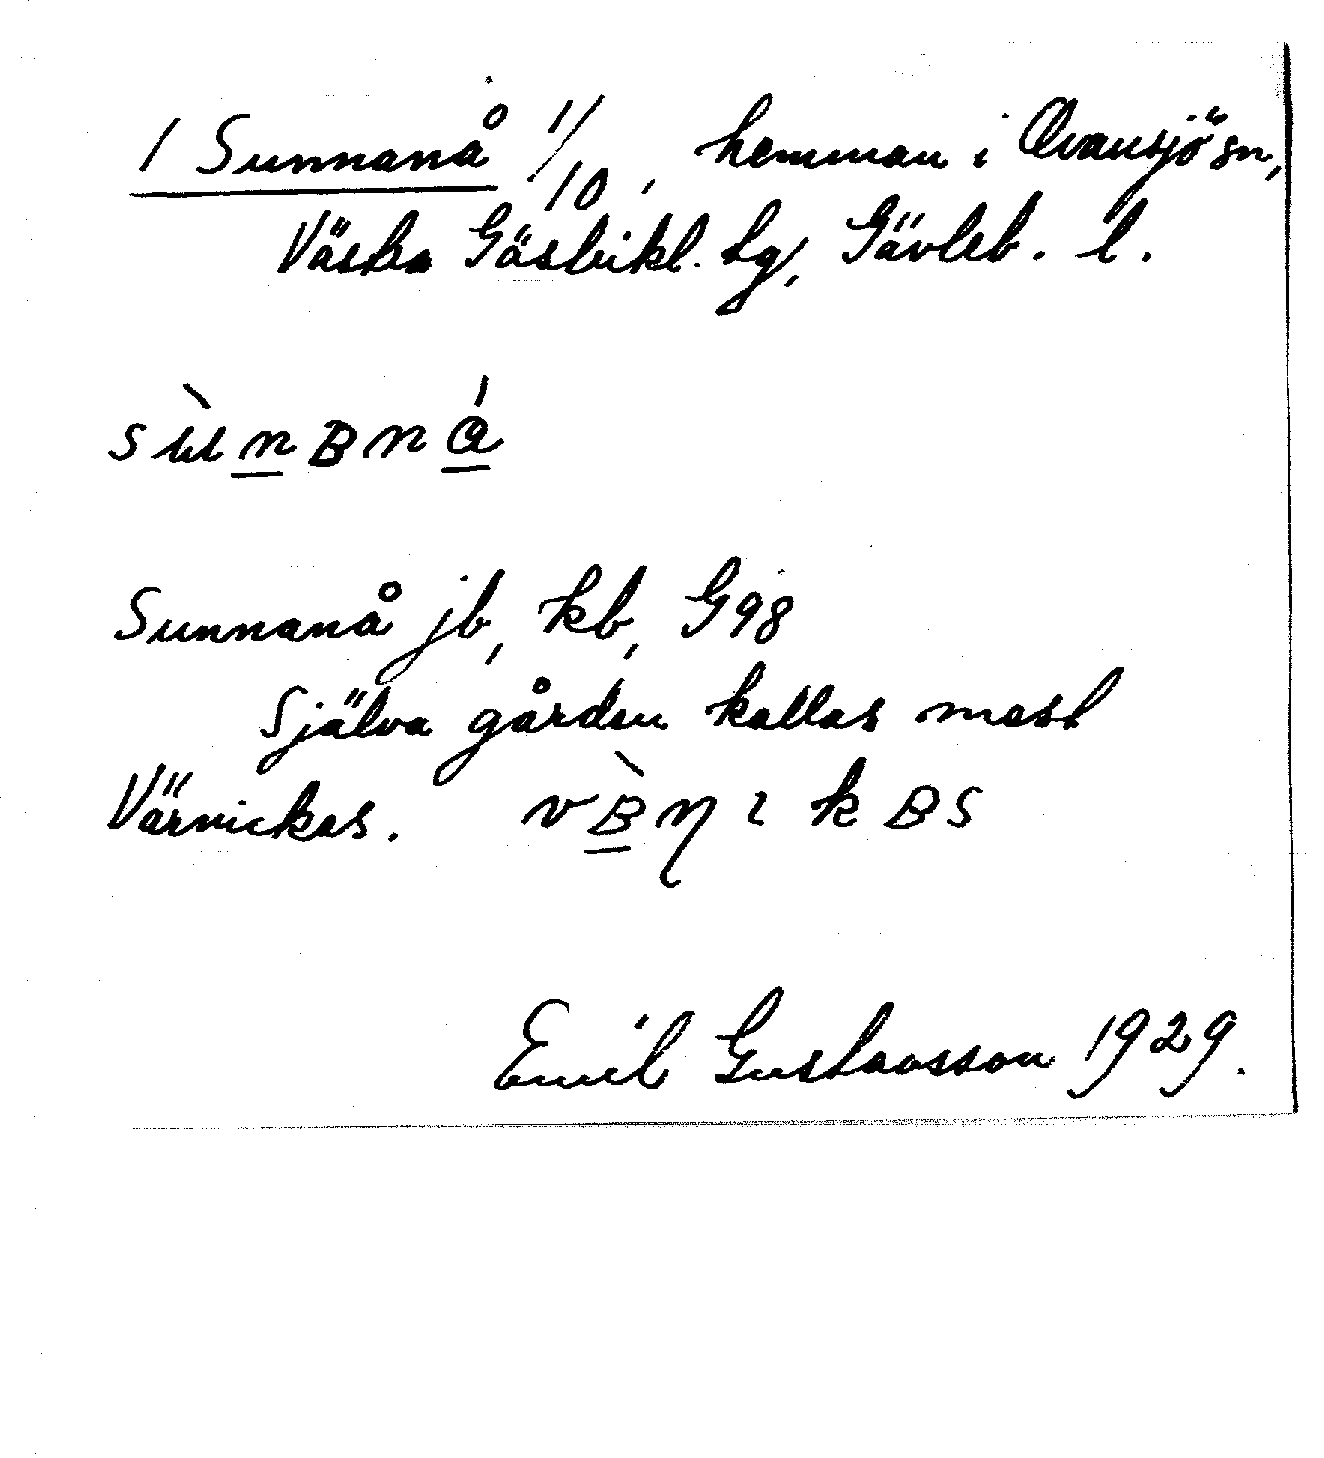 1 Sunnanå 1/10, hemman i Ovansjö sn,
Västra Gästrikl. tg, Gävleb. l.
sùnʙnɑ́
Sunnanå jb, kb, G98
Själva gården kallas mest
Värnickas. vʙ̀ɳıkʙs
Emil Gustavsson 1929.